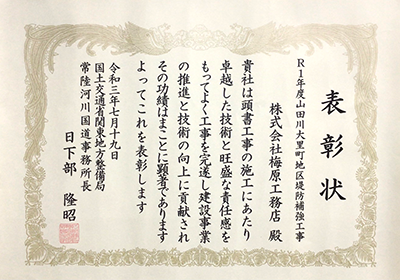 表彰状
R1年度山田川大里町地区堤防補強工事
株式会社梅原工務店 殿
貴社は頭書工事の施工にあたり
卓越した技術と旺盛な責任感を
もってよく工事を完遂し建設事業
の推進と技術の向上に貢献され
その功績はまことに顕著であります
よってこれを表彰します
令和三年七月十九日
国土交通省関東地方整備局
常陸河川国道事務所長
日下部 隆昭